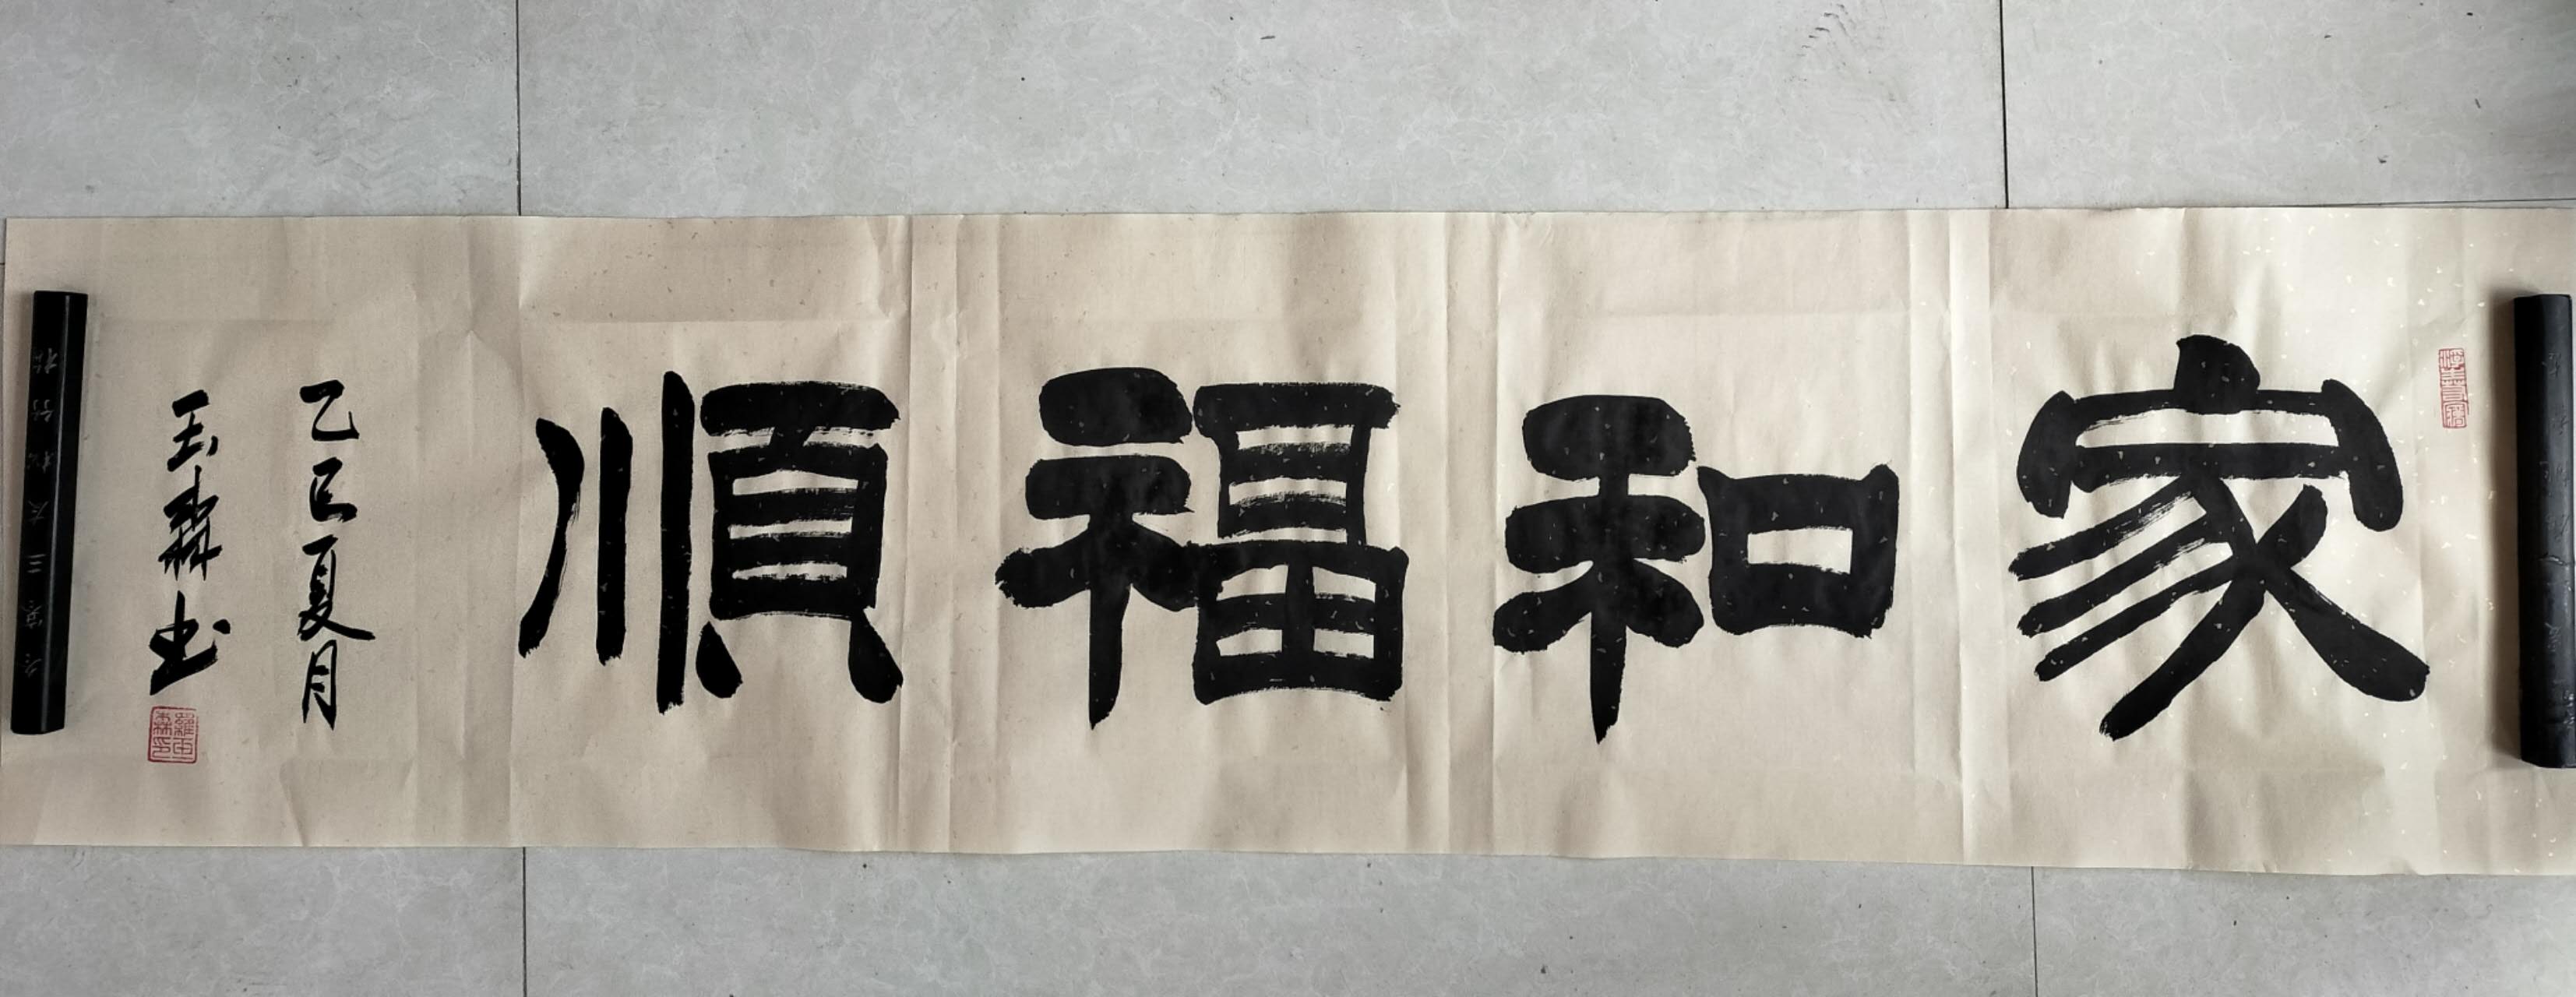 家和福順
乙巳夏月
玉霖书